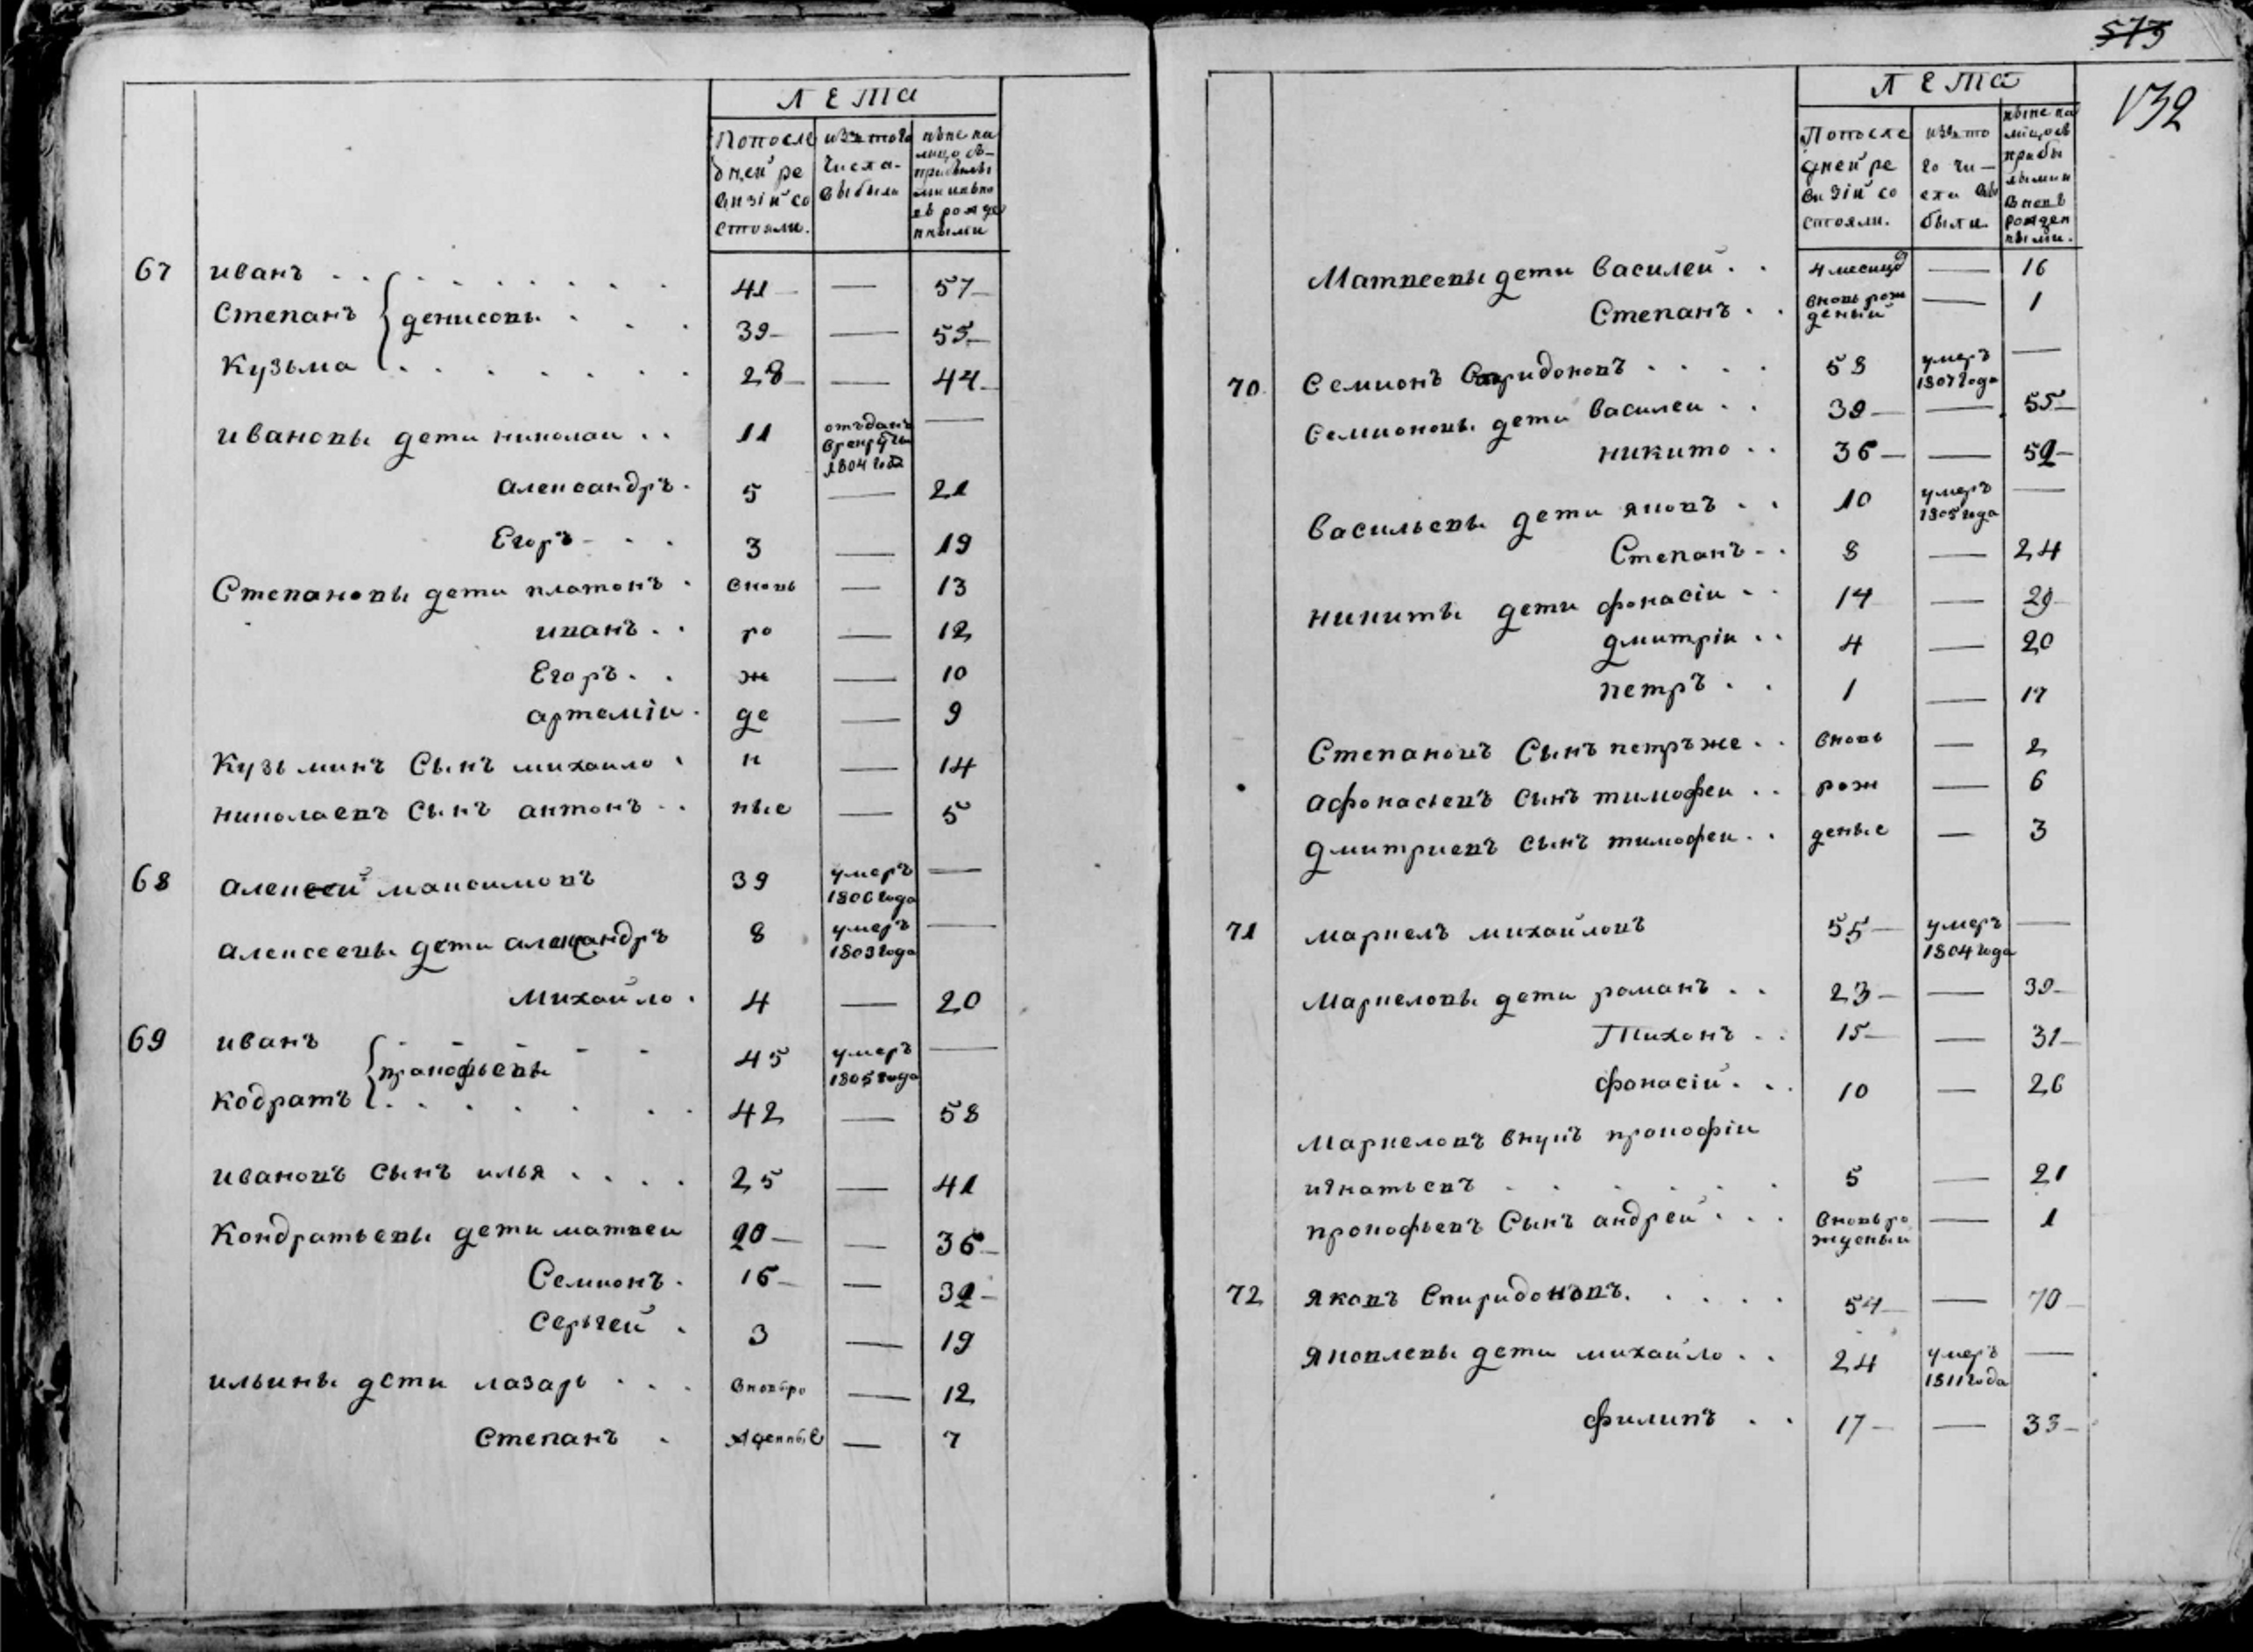 ЛЕТА
Попосле дней ре визiй со стояли.
изъ того числа выбыло
ныне на лицо съ прибылы ми и вно въ рожде нными
67 иванъ 41 — 57
Степанъ денисовы 39 — 55
Кузьма 28 — 44
ивановы дети николаи 11 отъданъ врекруты 1804 года —
александръ 5 — 21
Егоръ 3 — 19
Степановы дети платонъ вновь — 13
иванъ ро — 12
Егоръ ж — 10
артемiи де — 9
Кузьминъ Сынъ михаило н — 14
николаевъ Сынъ антонъ ные — 5
68 алексей максимовъ 39 умеръ 1806 года —
алексеевы дети александръ 8 умеръ 1803 года —
Михайло 4 — 20
69 иванъ 45 умеръ 1805 года —
прокофьевы
Кодратъ 42 — 58
ивановъ сынъ илья 25 — 41
Кондратьевы дети матвеи 20 — 36
Семионъ 16 — 32
Сергей 3 — 19
ильины дети лазарь вновь ро — 12
Степанъ жденные — 7
573
132
ЛЕТА
Попосле дней ре визiй со стояли.
изъ то го чи— сла вы были.
ныне на лицо съ прибы лыми и вновь рожден ными.
Матвеевы дети василей 4 месицъ — 16
Степанъ вновь рож деный — 1
70 Семионъ Спиридоновъ 58 умеръ 1807 года —
Семионовы дети василеи 39 — 55
никито 36 — 52
васильевы дети яковъ 10 умеръ 1805 года —
Степанъ 8 — 24
никиты дети фонасiи 14 — 29
дмитрiи 4 — 20
петръ 1 — 17
Степановъ Сынъ петръ же вновь — 2
афонасьевъ сынъ тимофеи рож — 6
дмитриевъ сынъ тимофеи деные — 3
71 маркелъ михайловъ 55 умеръ 1804 года —
Маркеловы дети романъ 23 — 39
Тихонъ 15 — 31
фонасiй 10 — 26
Маркеловъ внукъ прокофiи
игнатьевъ 5 — 21
прокофьевъ Сынъ андрей вновь ро жденый — 1
72 яковъ Спиридоновъ 54 — 70
яковлевы дети михайло 24 умеръ 1811 года —
филипъ 17 — 33